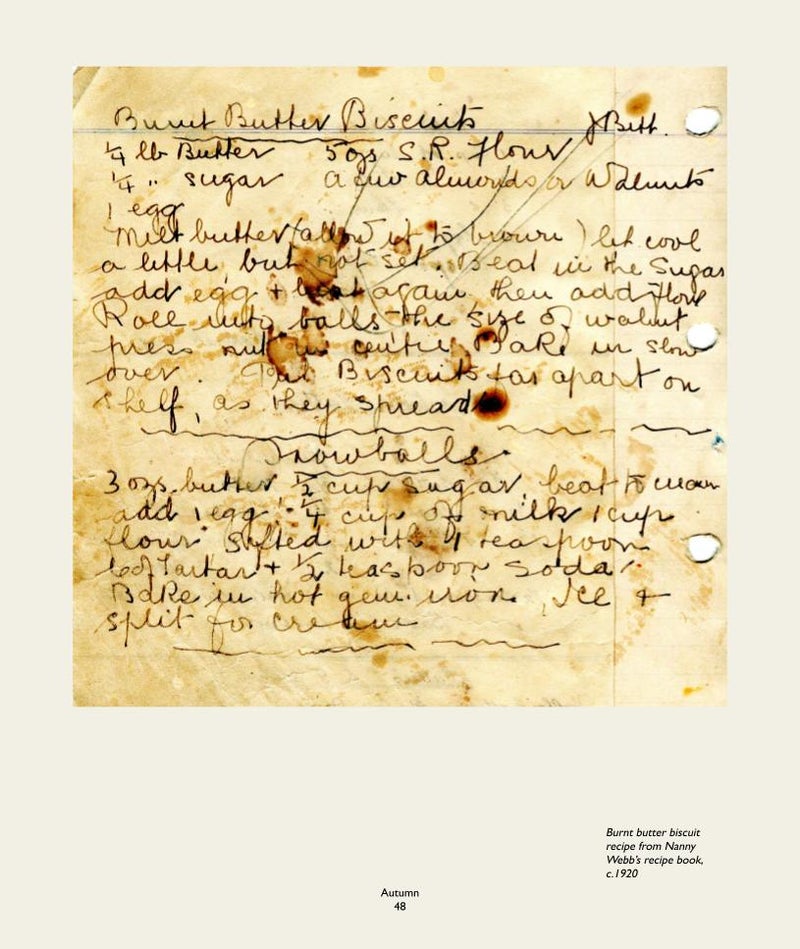 Burnt Butter Biscuits J Bett.
1/4 lb Butter 5 ozs S.R. Flour
1/4 " sugar a few almonds or Walnuts
1 egg
Melt butter (allow it to brown) let cool
a little, but not set. Beat in the Sugar
add egg + beat again then add flour
Roll into balls the size of walnut
press nut in centre Bake in slow
oven. Put Biscuits far apart on
shelf, as they spread
Snowballs.
3 ozs. butter 1/2 cup sugar, beat to cream
add 1 egg, 1/4 cup of milk 1 cup
flour sifted with 1 teaspoon
of Tartar + 1/2 teaspoon soda.
Bake in hot gem iron, Ice +
split for cream
Burnt butter biscuit
recipe from Nanny
Webb's recipe book,
c.1920
Autumn
48